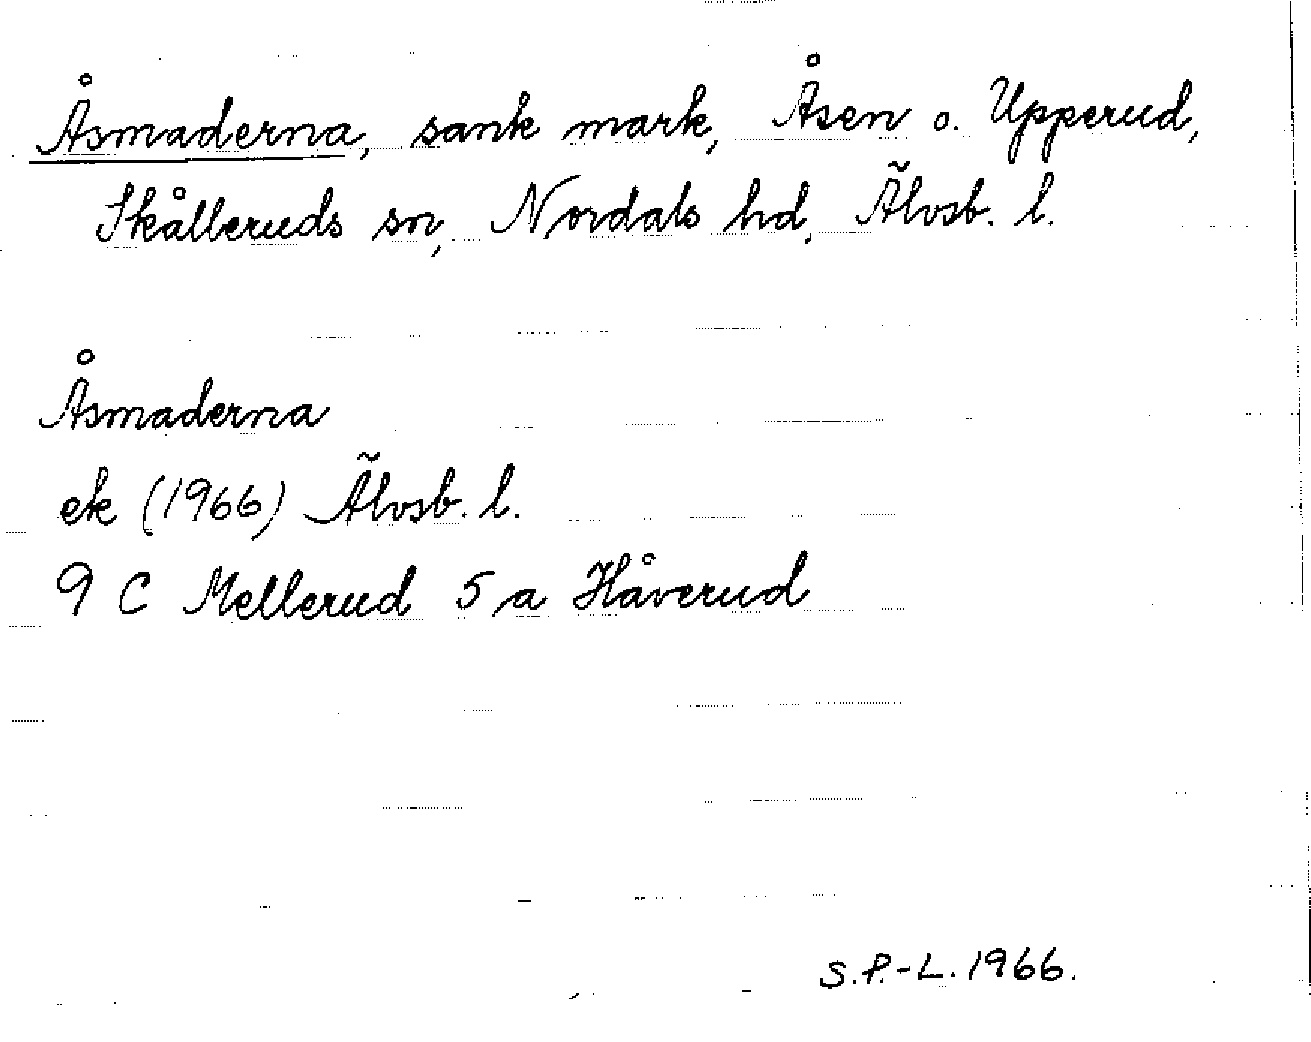 Åsmaderna, sank mark, Åsen o. Upperud,
Skålleruds sn, Nordals hd, Älvsb. l.
Åsmaderna
ek (1966) Älvsb. l.
9 C Mellerud 5 a Håverud
S.P.-L. 1966.